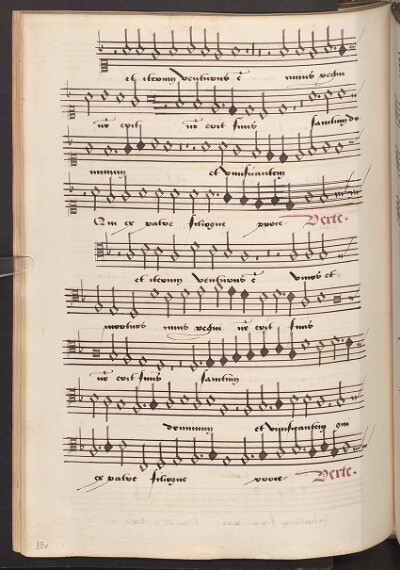 et iterum venturus ē cuius regni
nō erit nō erit finis sanctum do
minum et vivificantem
Qui ex patre filioque proce Verte.
et iterum venturus ē vivos et
mortuos cuius regni nō erit finis
nō erit finis sanctum
dominum et vivificantem qui
ex patre filioque proce Verte.